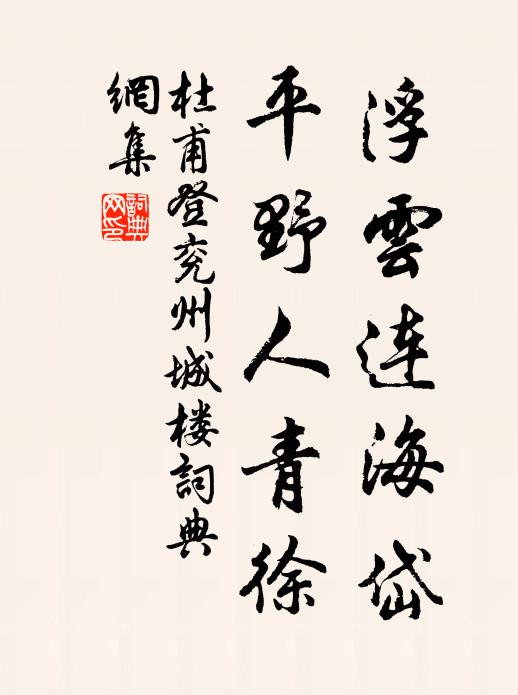 浮雲連海岱
平野人青徐
杜甫登兖州城楼詞典
網集
詞典网印